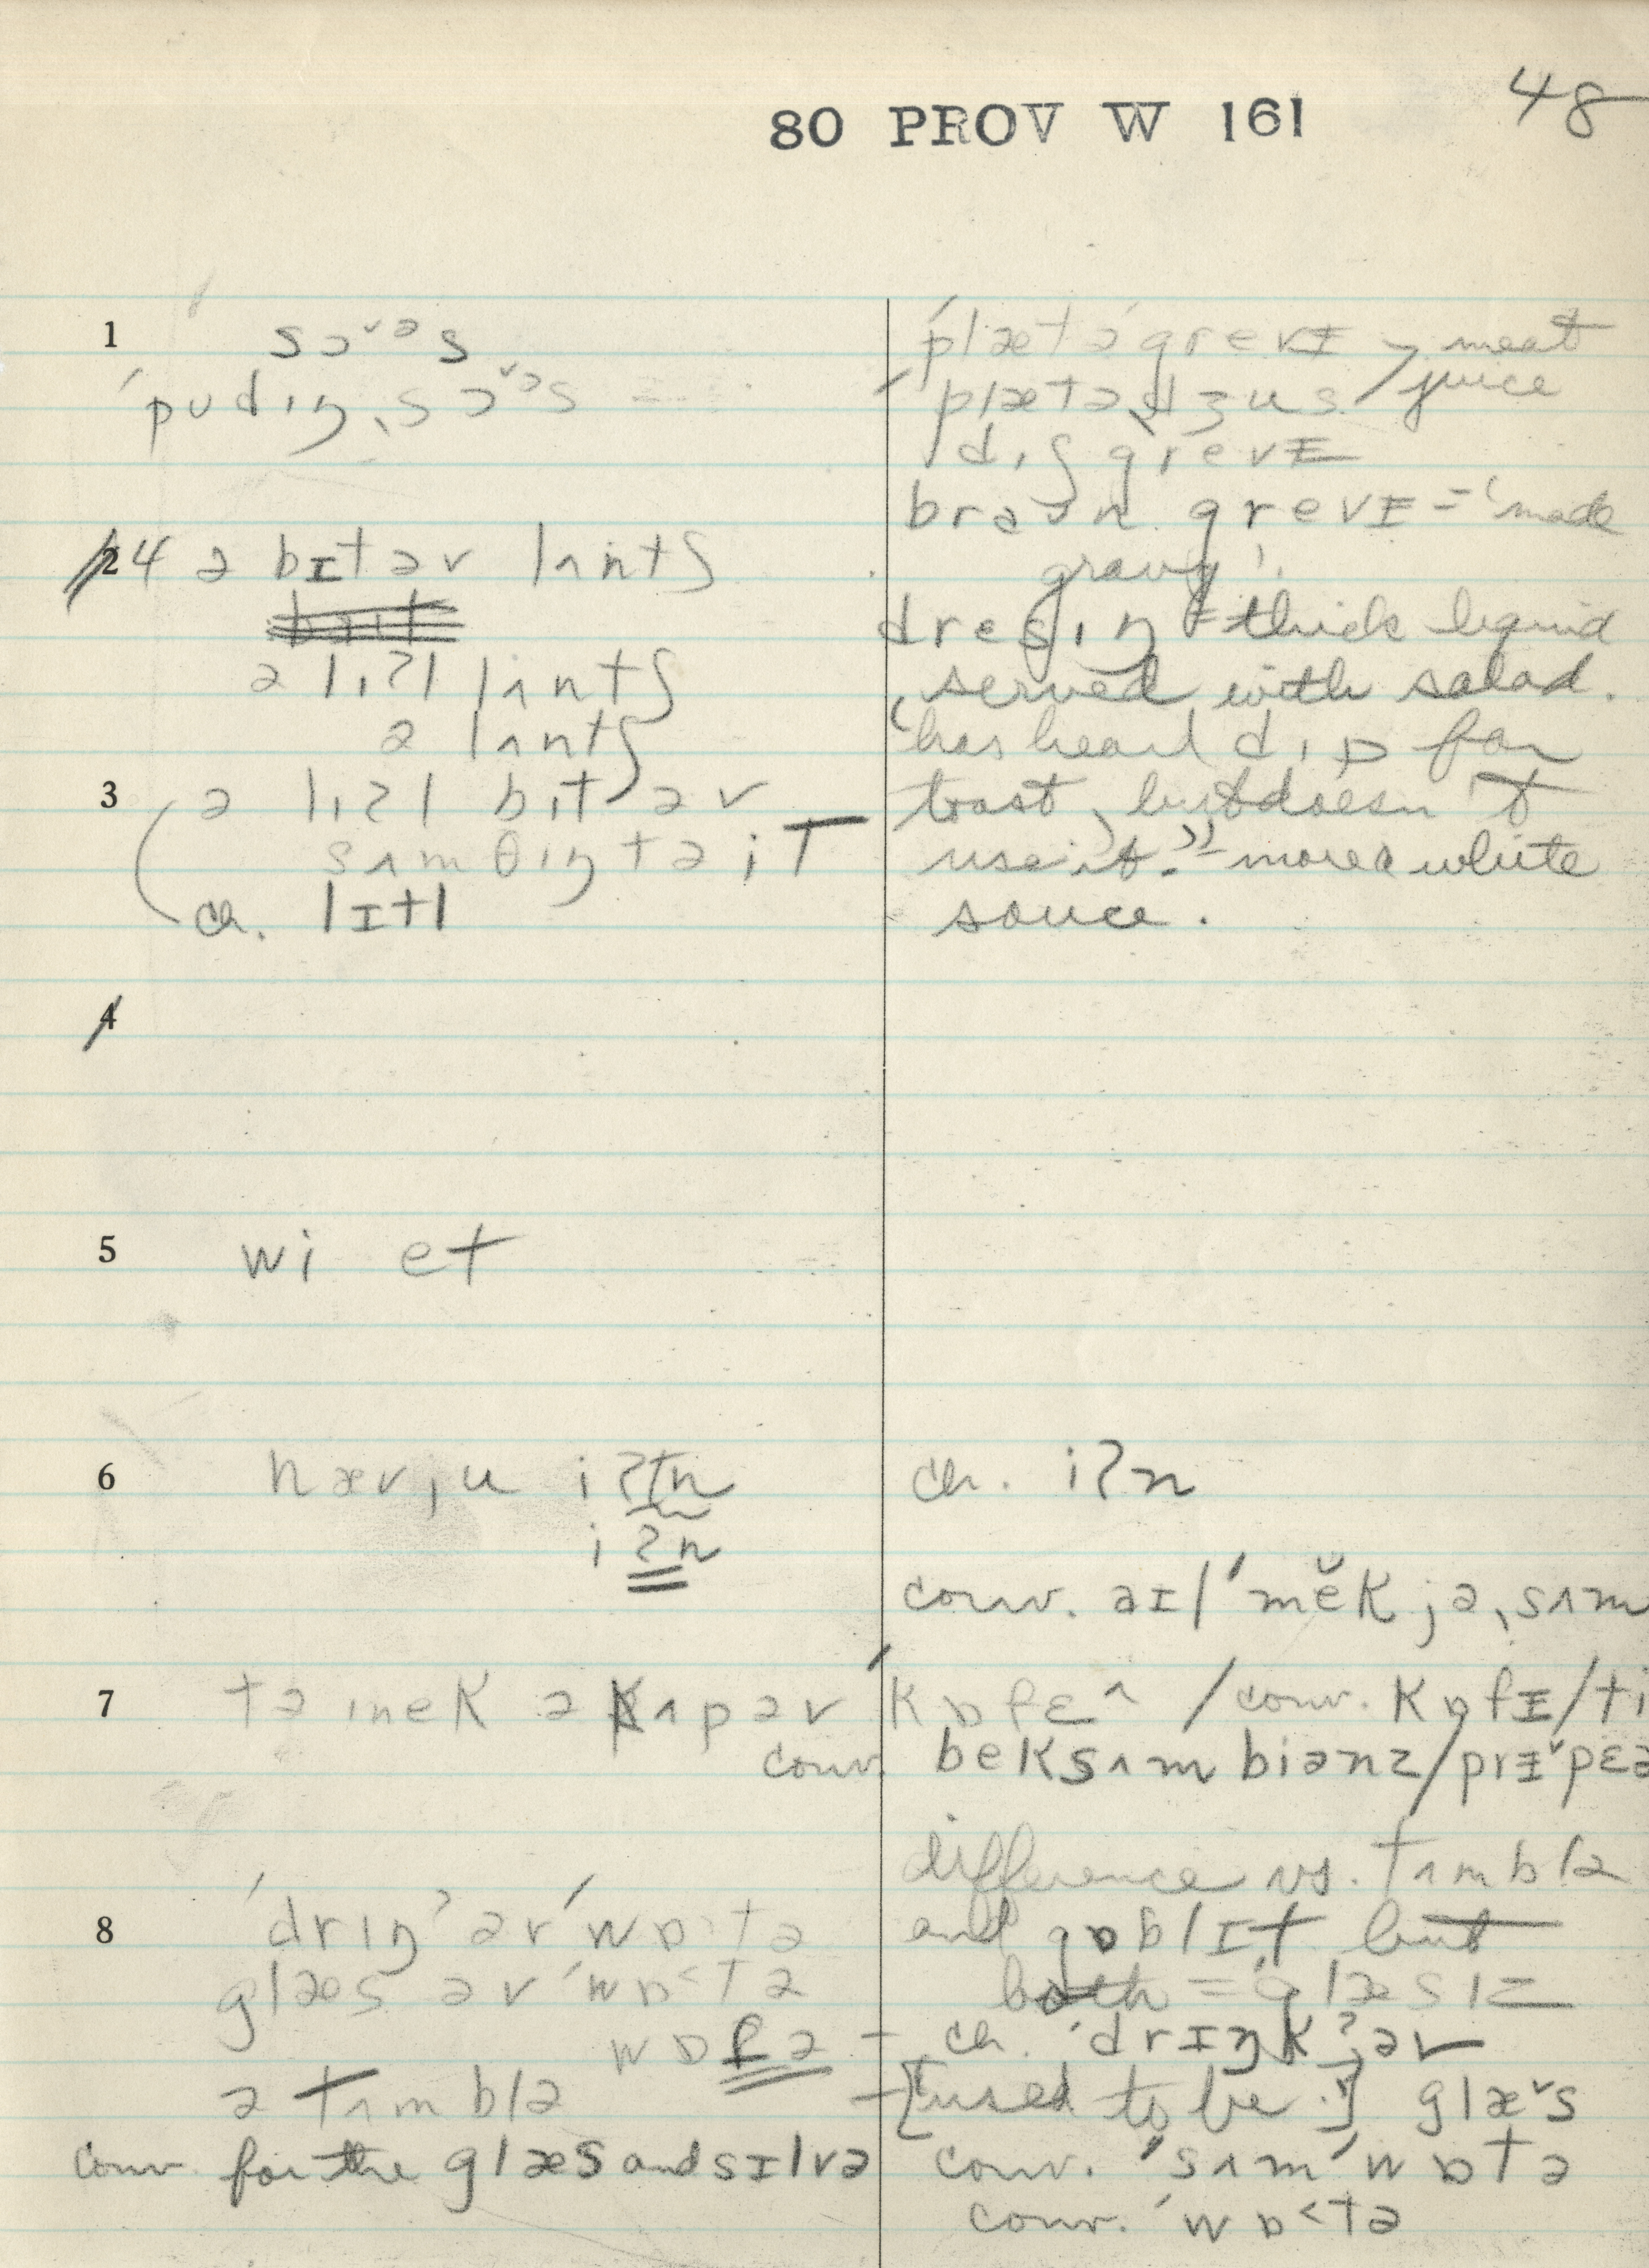 80 PROV W 161
48
1
sɔˇᵊs
ˈpudɪŋˌsɔˇᵊs
2 4 ə bɪt əv lʌntʃ
ə lɪʔl lʌntʃ
ə lʌntʃ
3 ə lɪʔl bɪt əv
sʌmθɪŋ tə iT
ch. lɪtl
4
5 wi et
6 hævˌju iʔtn
iʔn
7 tə mek ə kʌp əv
conv.
8 ˈdrɪŋˀ əv ˈwɒtə
glæs əv ˈwɒ<tə
wɒtə
ə tʌmblə
conv. for the glæs and sɪlvə
ˈplætəˈgrevɪ meat
ˈplætəˌdʒus juice
dɪʃ grevɪ
braʊn grevɪ = 'made
gravy'.
dresɪŋ = thick liquid
served with salad.
'has heard dɪp for
toast, but doesn't
use it.' = more a white
sauce.
ch. iʔn
conv. aɪl ˈmĕk jəˌsʌm
ˈkɒfɛ^ / conv. kɒfɪ / ti
bek sʌm biənz / prɪˇpɛə
difference vs. tʌmblə
and gɒblɪt but
both = glæsɪz
ch. ˈdrɪŋkˀəv
[used to be.] glæˇs
conv. ˈsʌm ˈwɒtə
conv. ˈwɒ<tə